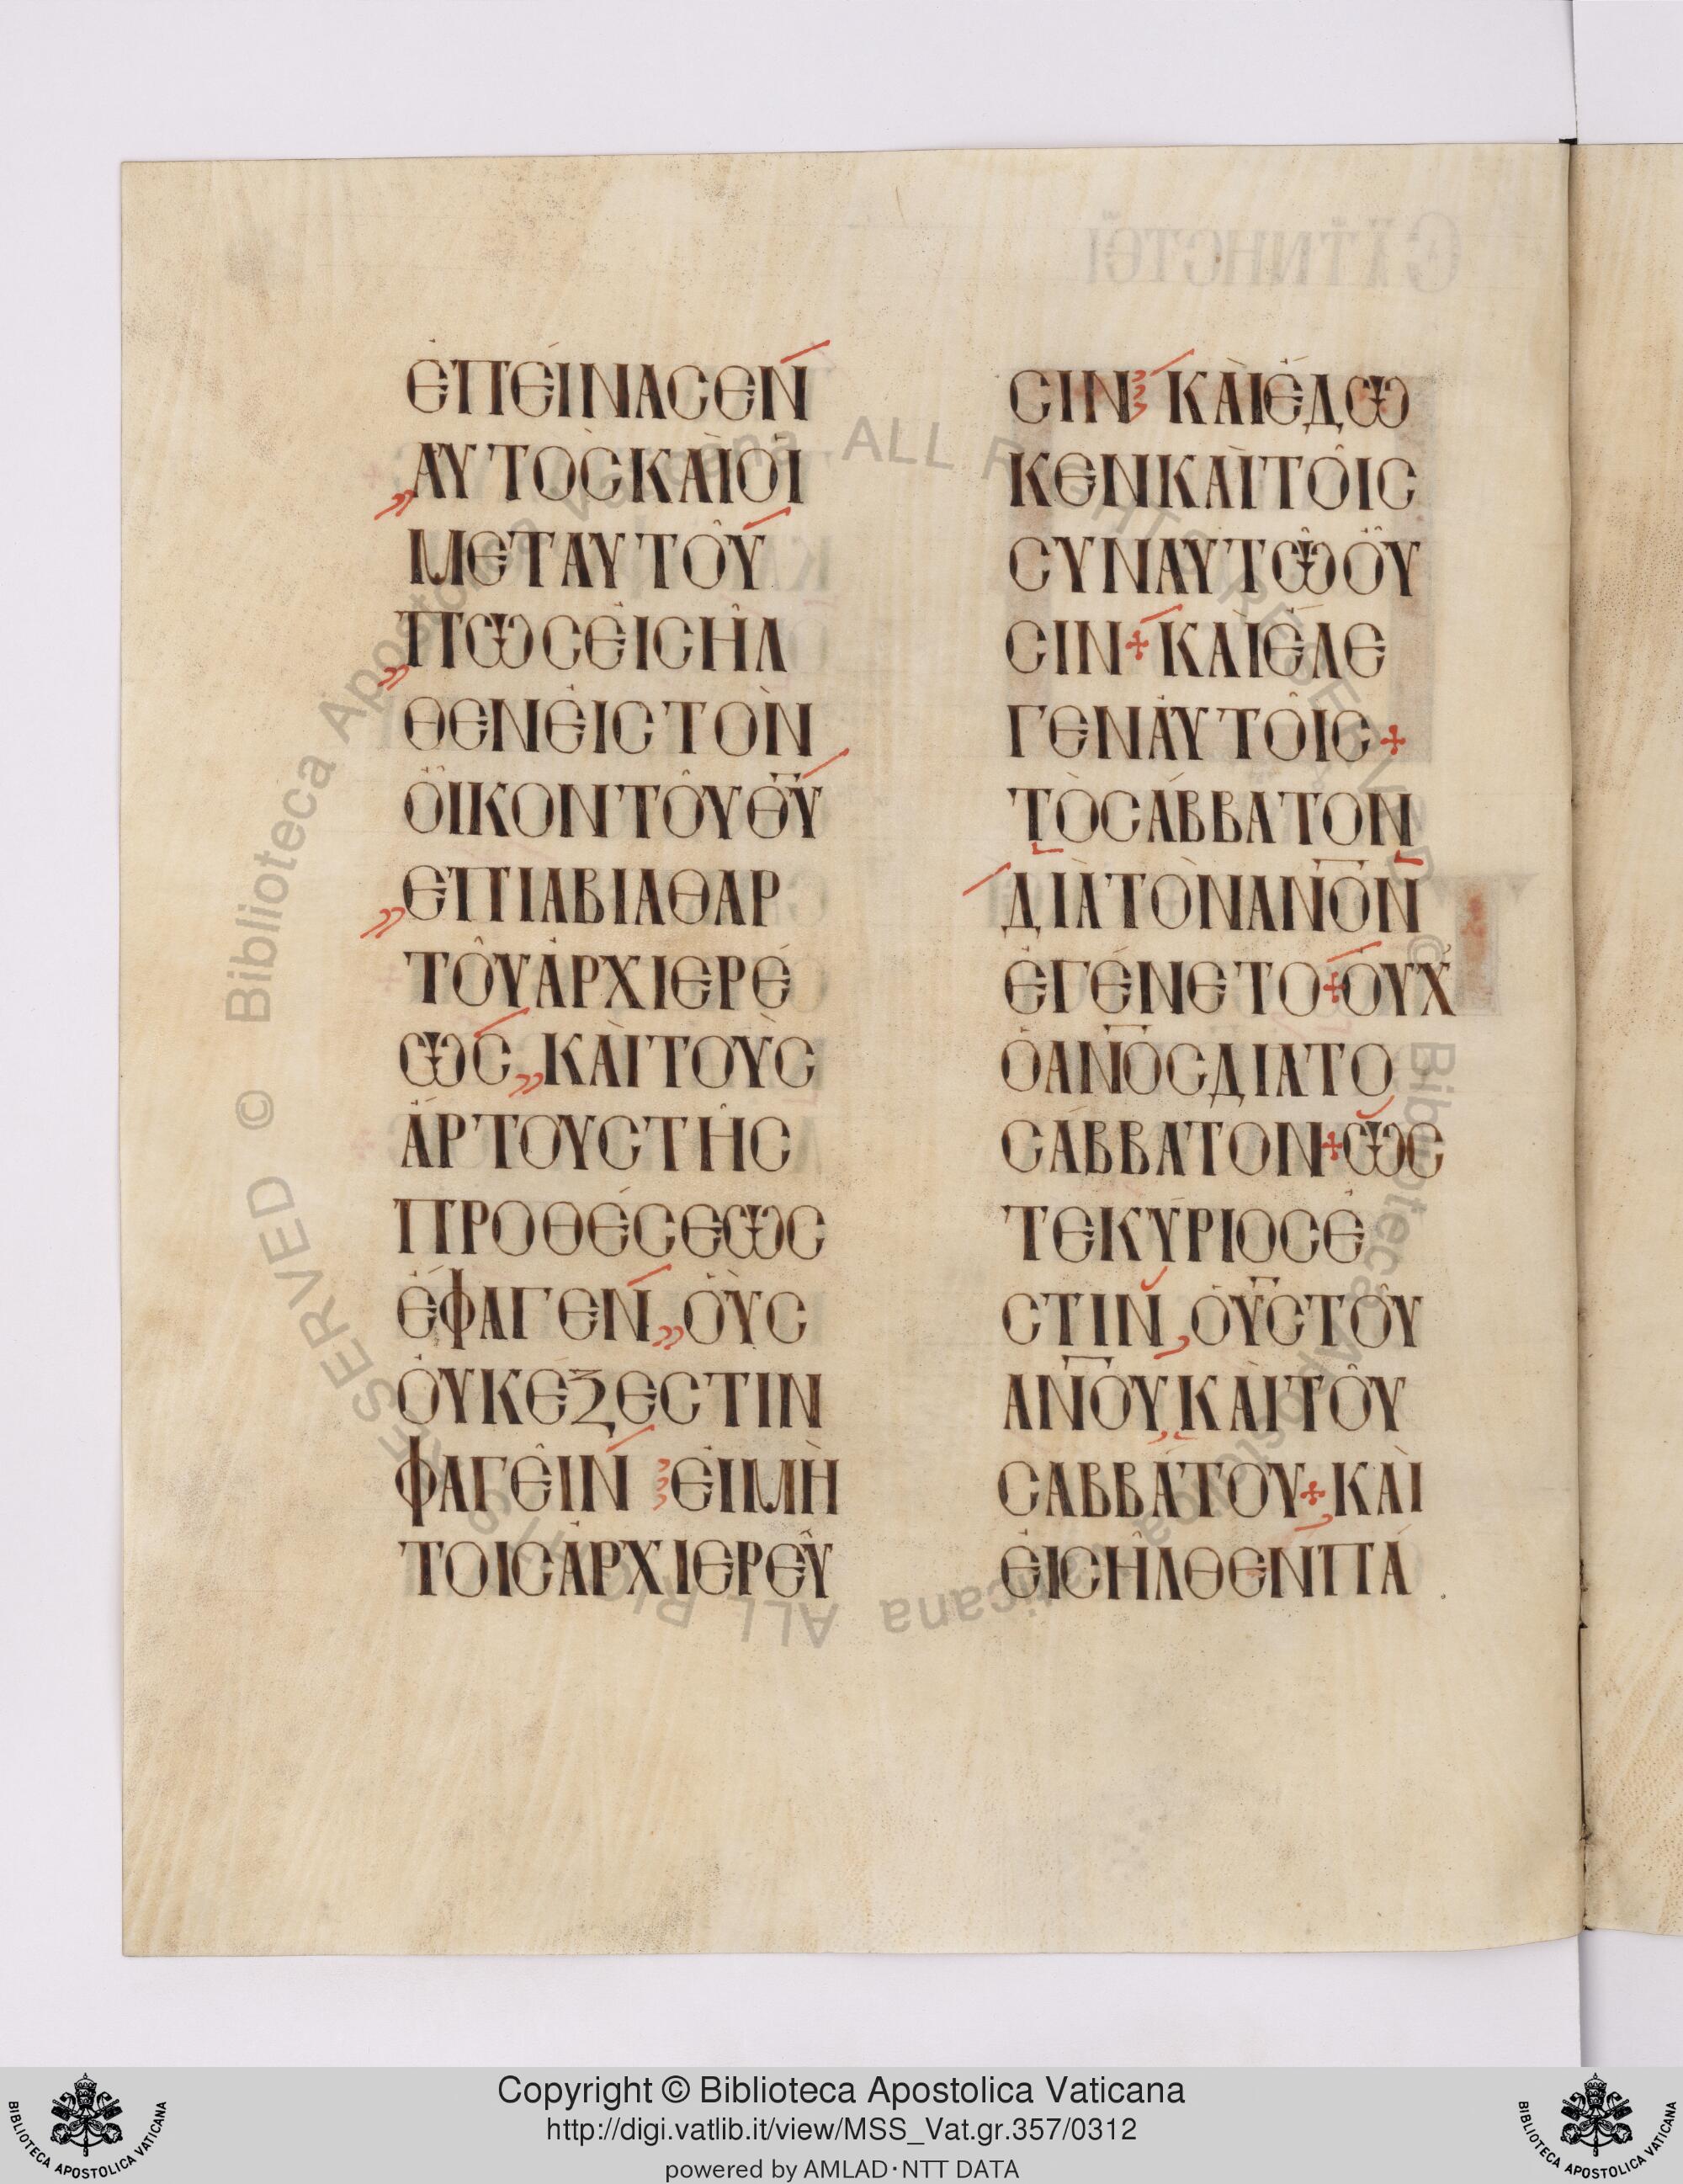 ἐπείνασεν
αὐτὸς καὶ οἱ
μετ αυτοῦ
πως εἰσῆλ
θεν εἰς τὸν
οἶκον τοῦ θ̅υ̅
επι αβιαθαρ
τοῦ ἀρχιερέ
ως καὶ τοὺς
ἄρτους τῆς
προθέσεως
ἔφαγεν οὓς
οὐκ έξεστιν
φαγεῖν εἰ μὴ
τοις ἀρχιερεῦ
σιν καὶ ἔδω
κεν καὶ τοῖς
συν αυτῶ οὖ
σιν + καὶ ἔλε
γεν ἀυτοῖς +
τὸ σάββατον
διὰ τὸν α̅ν̅ο̅ν̅
ἐγένετο + οὐχ
ὁ α̅ν̅ο̅ς̅ δια το
σάββατον + ὥς
τε κύριος ἐ
στιν ὁ υ̅ς̅ τοῦ
α̅ν̅ο̅υ̅ καὶ τοῦ
σαββάτου + καὶ
εἰσῆλθεν πά
Copyright © Biblioteca Apostolica Vaticana
http://digi.vatlib.it/view/MSS_Vat.gr.357/0312
powered by AMLAD·NTT DATA
BIBLIOTECA APOSTOLICA VATICANA
BIBLIOTECA APOSTOLICA VATICANA